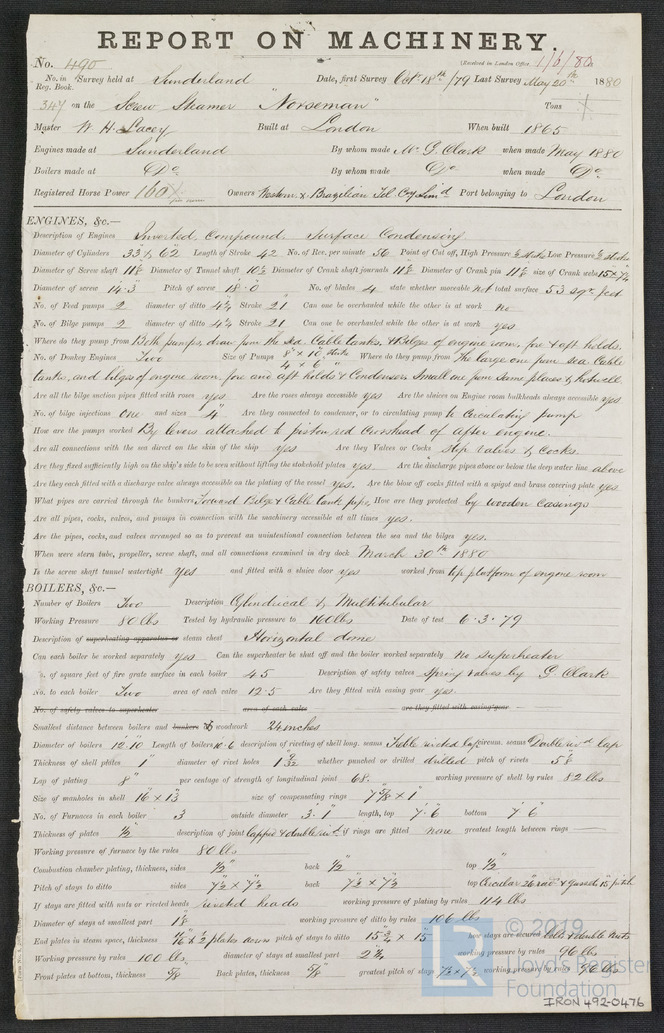 REPORT ON MACHINERY.
No. 490 (Received in London Office 1/6/80
No. in Reg. Book. Survey held at Sunderland Date, first Survey Oct. 18th /79 Last Survey May 20th 1880
347 on the Screw Steamer "Norseman" Tons
Master W. H. Lacey Built at London When built 1865
Engines made at Sunderland By whom made Mr. G. Clark when made May 1880
Boilers made at Do. By whom made Do. when made Do.
Registered Horse Power 160 Owners Western & Brazilian Tel Coy Limd. Port belonging to London
ENGINES, &c.—
Description of Engines Inverted, Compound. Surface Condensing
Diameter of Cylinders 33 & 62 Length of Stroke 42 No. of Rev. per minute 56 Point of Cut off, High Pressure Low Pressure
Diameter of Screw shaft Diameter of Tunnel shaft Diameter of Crank shaft journals Diameter of Crank pin size of Crank webs
Diameter of screw 14·3 Pitch of screw 18·0 No. of blades 4 state whether moveable not total surface 53 sqr. feet
No. of Feed pumps 2 diameter of ditto 4¼ Stroke 21 Can one be overhauled while the other is at work no
No. of Bilge pumps 2 diameter of ditto 4¼ Stroke 21 Can one be overhauled while the other is at work yes
Where do they pump from Both pumps draw from the sea. Cable tanks, & Bilges of engine room, fore & aft holds.
No. of Donkey Engines Two Size of Pumps 8" x 10" stroke 4" x 6" " Where do they pump from The large one from sea Cable
tanks, and bilges of engine room, fore and aft holds & Condenser. Small one from same places & hotwell.
Are all the bilge suction pipes fitted with roses yes Are the roses always accessible yes Are the sluices on Engine room bulkheads always accessible yes
No. of bilge injections one and sizes 4" Are they connected to condenser, or to circulating pump to Circulating pump
How are the pumps worked By levers attached to piston rod Crosshead of after engine.
Are all connections with the sea direct on the skin of the ship yes Are they Valves or Cocks stop valves & cocks.
Are they fixed sufficiently high on the ship's side to be seen without lifting the stokehold plates yes. Are the discharge pipes above or below the deep water line above
Are they each fitted with a discharge valve always accessible on the plating of the vessel yes. Are the blow off cocks fitted with a spigot and brass covering plate yes.
What pipes are carried through the bunkers Forward Bilge & Cable tank pipes, How are they protected by wooden casings
Are all pipes, cocks, valves, and pumps in connection with the machinery accessible at all times yes.
Are the pipes, cocks, and valves arranged so as to prevent an unintentional connection between the sea and the bilges yes.
When were stern tube, propeller, screw shaft, and all connections examined in dry dock March 30th 1880
Is the screw shaft tunnel watertight yes and fitted with a sluice door yes worked from top platform of engine room
BOILERS, &c.—
Number of Boilers Two Description Cylindrical & Multitubular
Working Pressure 80 lbs Tested by hydraulic pressure to 160 lbs Date of test 6·3·79
Description of superheating apparatus or steam chest Horizontal dome
Can each boiler be worked separately yes Can the superheater be shut off and the boiler worked separately no superheater
No. of square feet of fire grate surface in each boiler 45 Description of safety valves Spring valves by G. Clark
No. to each boiler Two area of each valve 12·5 Are they fitted with easing gear yes.
No. of safety valves to superheater area of each valve are they fitted with easing gear
Smallest distance between boilers and bunkers & woodwork 24 inches
Diameter of boilers 12·10 Length of boilers 10·6 description of riveting of shell long. seams Treble riveted lap circum. seams Double rivd. lap
Thickness of shell plates 1" diameter of rivet holes whether punched or drilled drilled pitch of rivets
Lap of plating 8" per centage of strength of longitudinal joint 68. working pressure of shell by rules 82 lbs
Size of manholes in shell 16" x 13" size of compensating rings 7⅜" x 1"
No. of Furnaces in each boiler 3 outside diameter 3·1" length, top 7·6 bottom 7·6
Thickness of plates ½" description of joint lapped & double rivd. if rings are fitted none greatest length between rings
Working pressure of furnace by the rules 80 lbs
Combustion chamber plating, thickness, sides ½" back ½" top ½"
Pitch of stays to ditto sides 7½" x 7½" back 7½" x 7½" top
If stays are fitted with nuts or riveted heads riveted heads working pressure of plating by rules 114 lbs
Diameter of stays at smallest part working pressure of ditto by rules 106 lbs
End plates in steam space, thickness pitch of stays to ditto 15¾" x 15" how stays are secured
Working pressure by rules 100 lbs diameter of stays at smallest part working pressure by rules 96 lbs
Front plates at bottom, thickness ⅝" Back plates, thickness ⅝" greatest pitch of stays working pressure by rules 96 lbs
© 2019
Lloyd's Register
Foundation
LR
IRON 492-0476